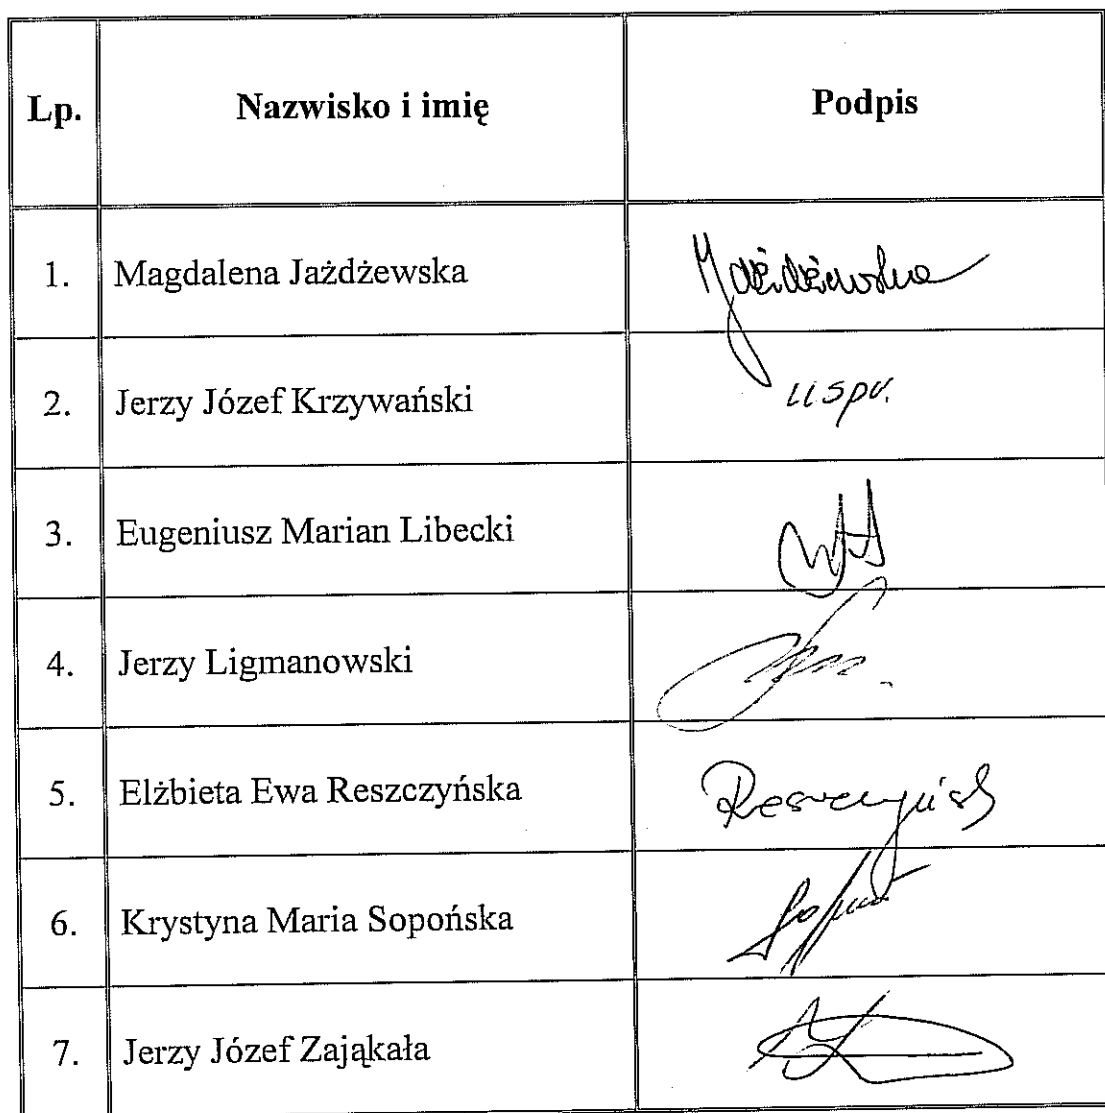 Lp. Nazwisko i imię Podpis
1. Magdalena Jażdżewska MJażdżewska
2. Jerzy Józef Krzywański uspr.
3. Eugeniusz Marian Libecki
4. Jerzy Ligmanowski
5. Elżbieta Ewa Reszczyńska
6. Krystyna Maria Sopońska
7. Jerzy Józef Zająkała